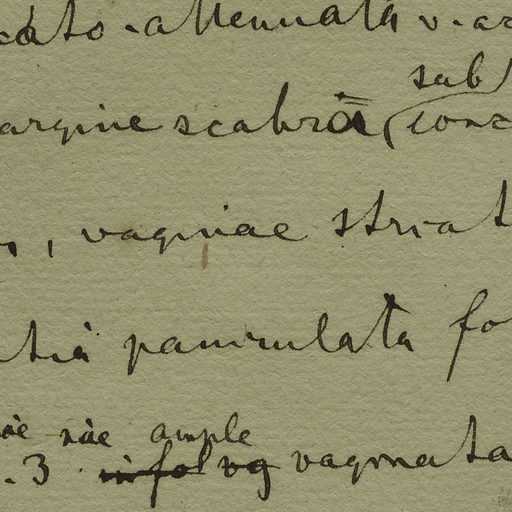 cato-attenuata v. ac
sub
argine scabrā (conc
, vaginae striat
tia paniculata fo
ample
. 3 in fol vg vaginata